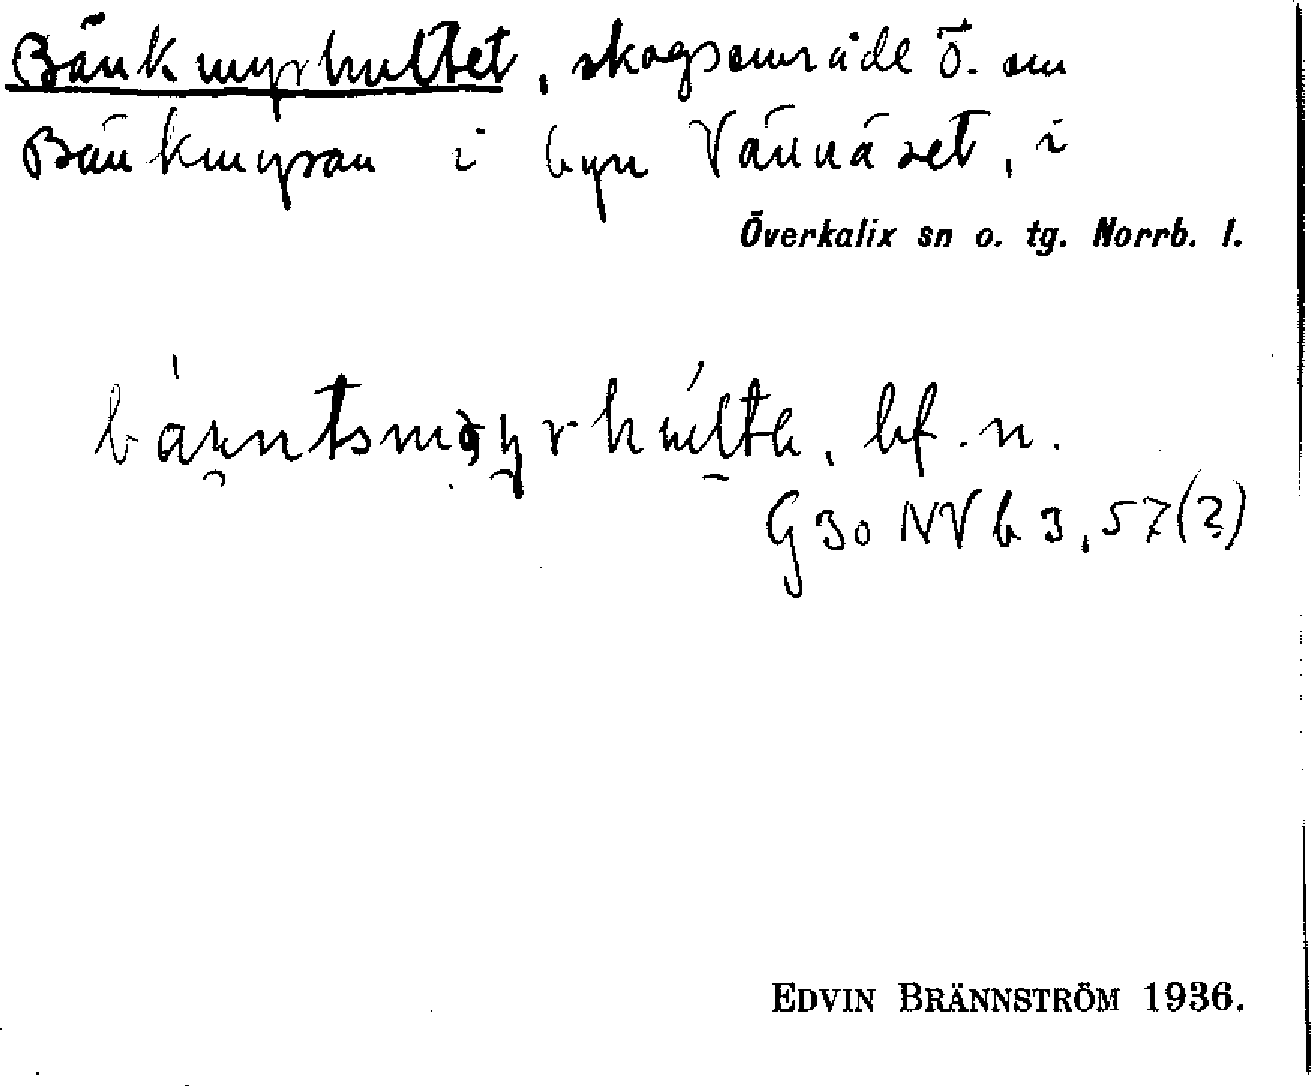 Bänkmyrhultet, skogsområde ö. om
Bänkmyran i byn Vännäset, i
Överkalix sn o. tg. Norrb. l.
bf. n.
G 30 NV b 3, 57(?)
EDVIN BRÄNNSTRÖM 1936.